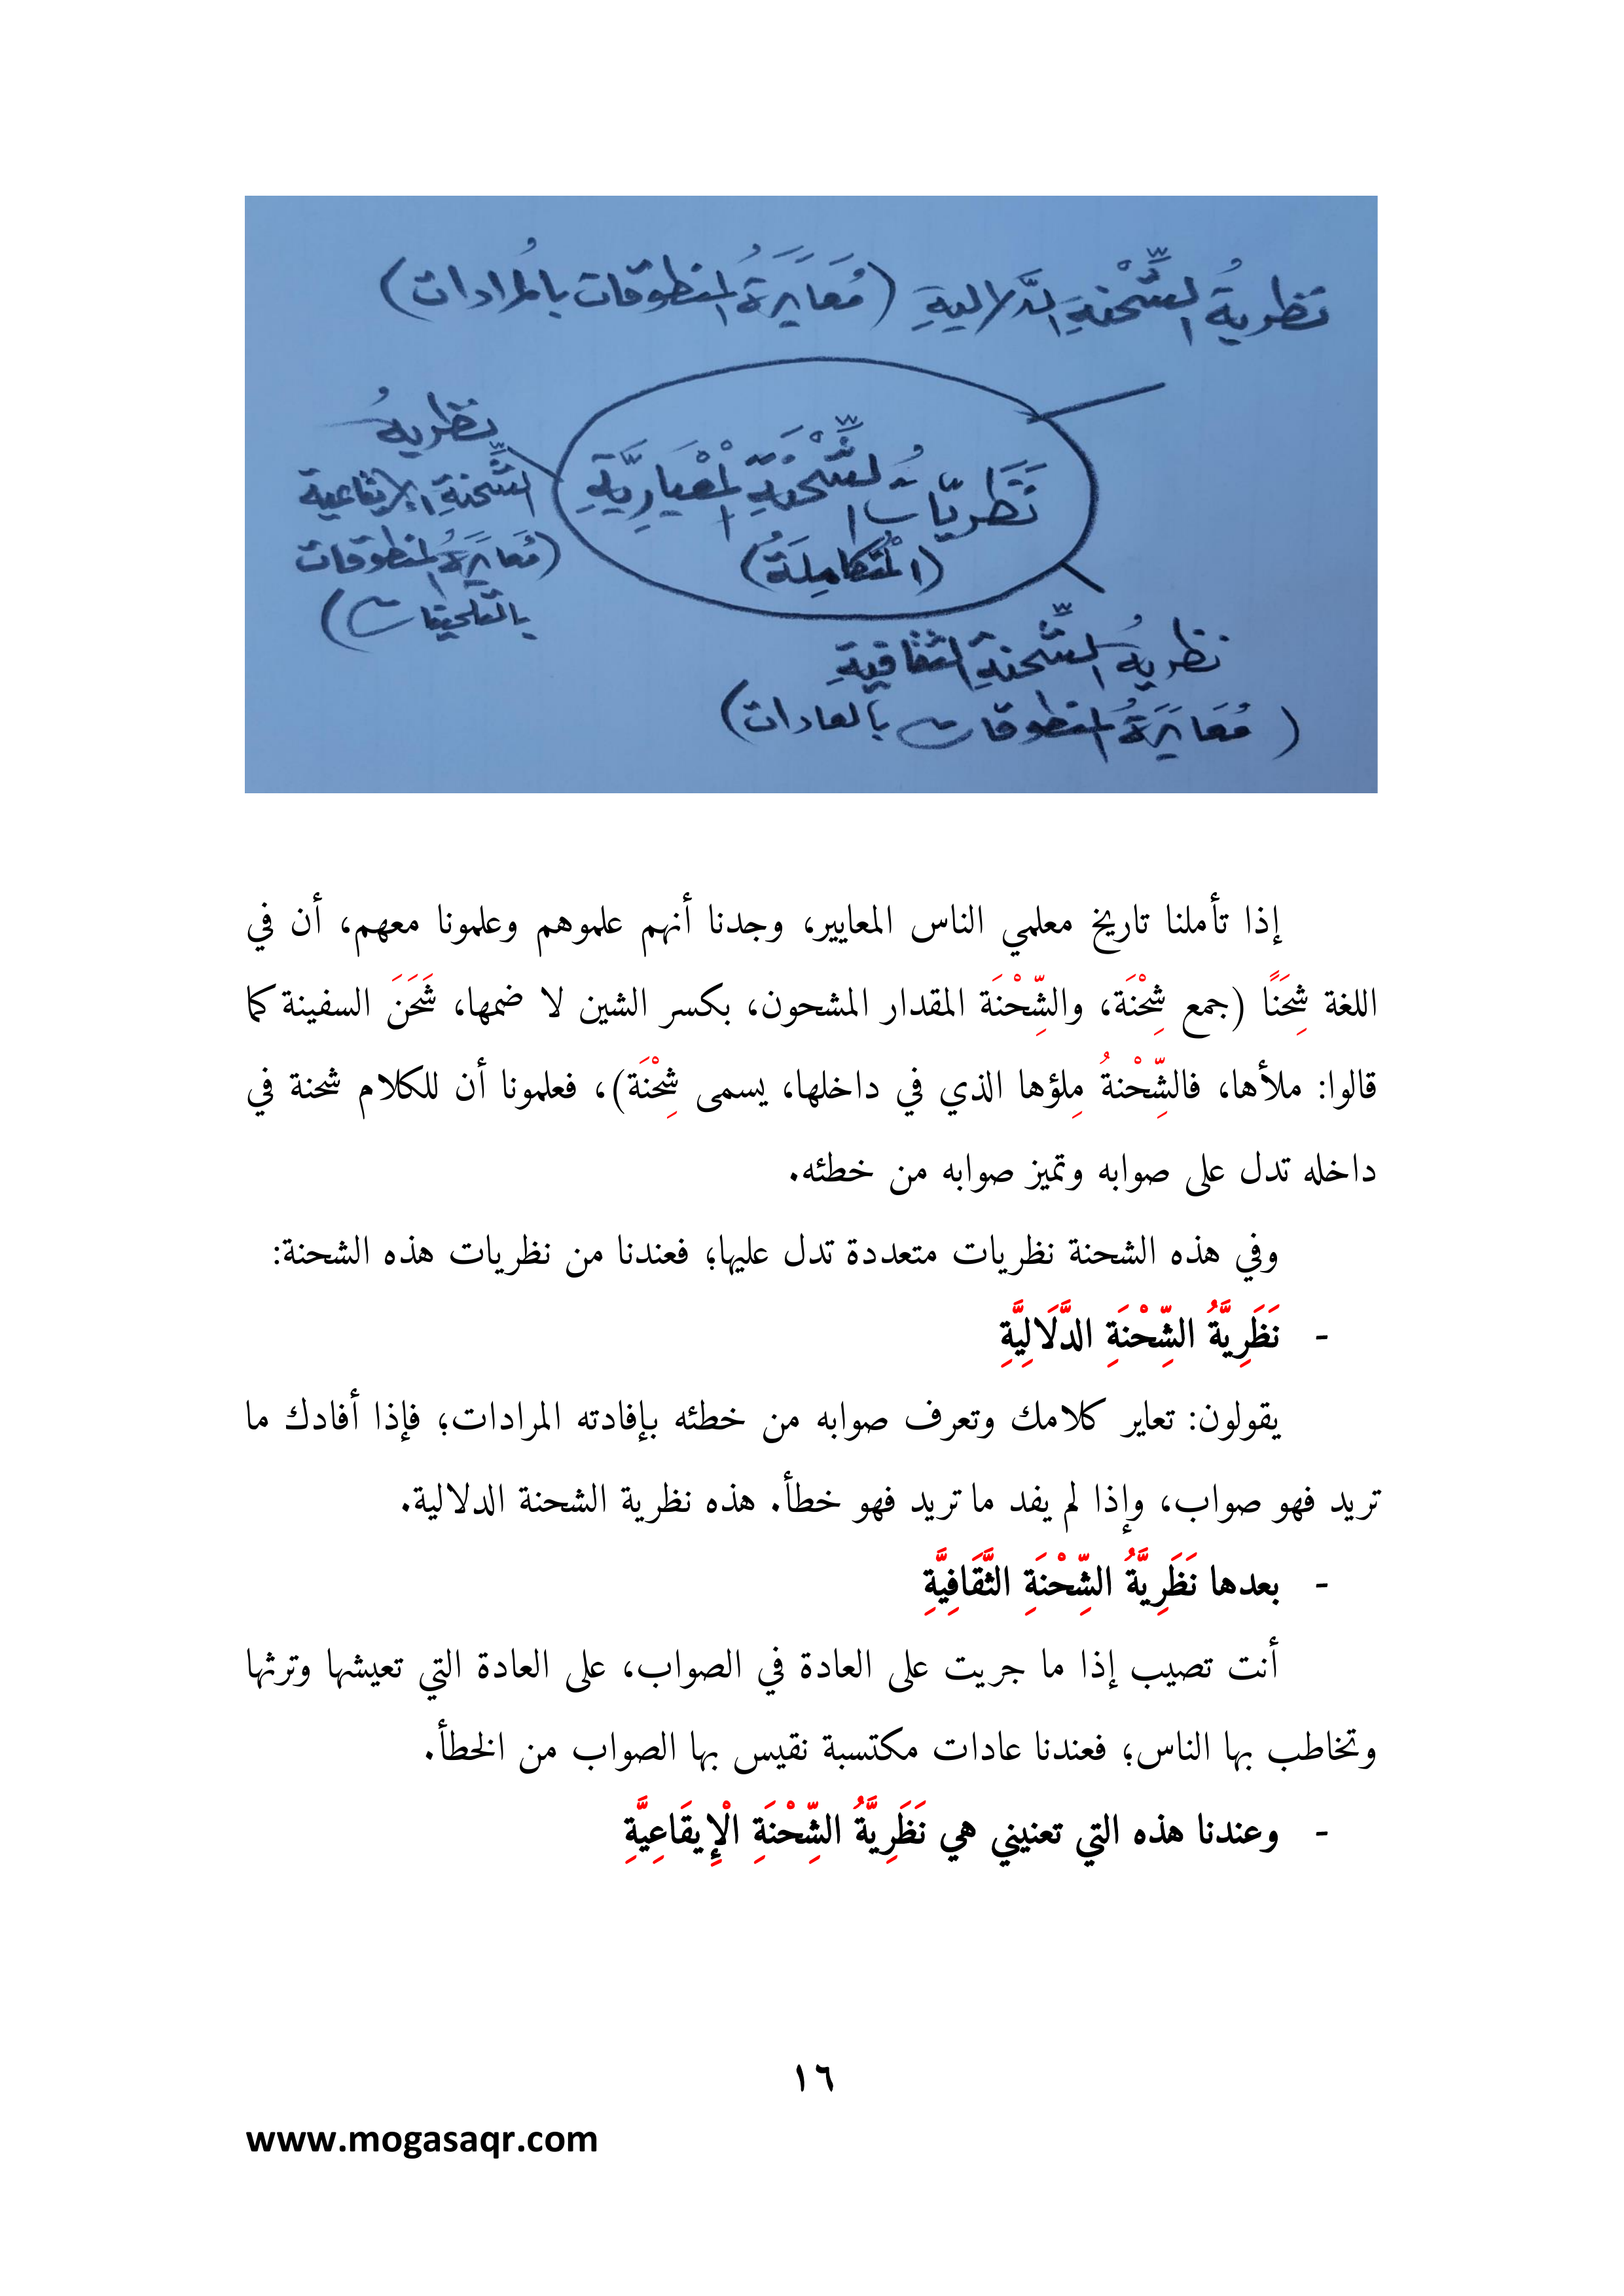 نظريةُ الشِّحْنةِ الدَّلاليةِ (مُعَايَرَةُ المنطوقات بالمُرادات)
نَظَرِيّاتُ الشِّحْنَةِ الْمِعْيَارِيَّةِ
(الْمُتَكامِلَةُ)
نظريةُ
الشِّحنةِ الإيقاعية
(مُعَايَرَةُ المنطوقات
بالتلحينات)
نظريةُ الشِّحنةِ الثقافيةِ
(مُعَايَرَةُ المنطوقات بالعادات)
إذا تأملنا تاريخ معلمي الناس المعايير، وجدنا أنهم علموهم وعلمونا معهم، أن في
اللغة شِحَنًا (جمع شِحْنَة، والشِّحْنَة المقدار المشحون، بكسر الشين لا ضمها، شَحَنَ السفينة كما
قالوا: ملأها، فالشِّحْنةُ مِلؤها الذي في داخلها، يسمى شِحْنَة)، فعلمونا أن للكلام شحنة في
داخله تدل على صوابه وتميز صوابه من خطئه.
وفي هذه الشحنة نظريات متعددة تدل عليها؛ فعندنا من نظريات هذه الشحنة:
- نَظَرِيَّةُ الشِّحْنَةِ الدَّلَالِيَّةِ
يقولون: تعاير كلامك وتعرف صوابه من خطئه بإفادته المرادات؛ فإذا أفادك ما
تريد فهو صواب، وإذا لم يفد ما تريد فهو خطأ. هذه نظرية الشحنة الدلالية.
- بعدها نَظَرِيَّةُ الشِّحْنَةِ الثَّقَافِيَّةِ
أنت تصيب إذا ما جريت على العادة في الصواب، على العادة التي تعيشها وترثها
وتخاطب بها الناس؛ فعندنا عادات مكتسبة نقيس بها الصواب من الخطأ.
- وعندنا هذه التي تعنيني هي نَظَرِيَّةُ الشِّحْنَةِ الْإِيقَاعِيَّةِ
١٦
www.mogasaqr.com